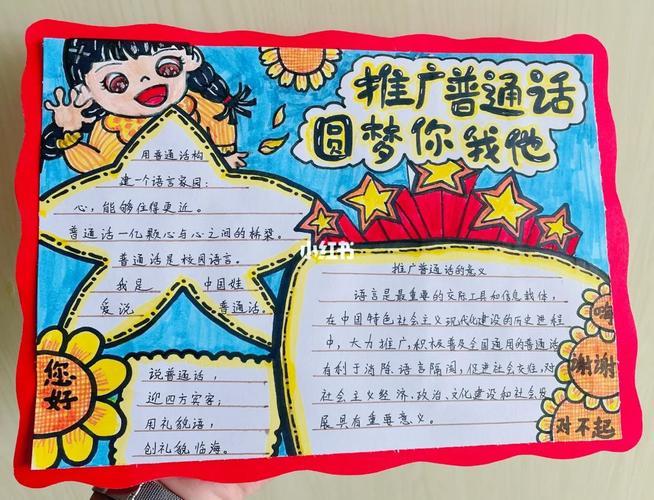 推广普通话
圆梦你我他
用普通话构
建一个语言家园：
心，能够住得更近。
普通话一亿颗心与心之间的桥梁。
普通话是校园语言。
我是 中国娃
爱说 普通话，
小红书
推广普通话的意义
语言是最重要的交际工具和信息载体，
在中国特色社会主义现代化建设的历史进程
中，大力推广，积极普及全国通用的普通话
有利于消除语言隔阂，促进社会交往，对
社会主义经济、政治、文化建设和社会发
展具有重要意义。
您好
说普通话，
迎四方宾客；
用礼貌语，
创礼貌临海。
嗨
谢谢
对不起